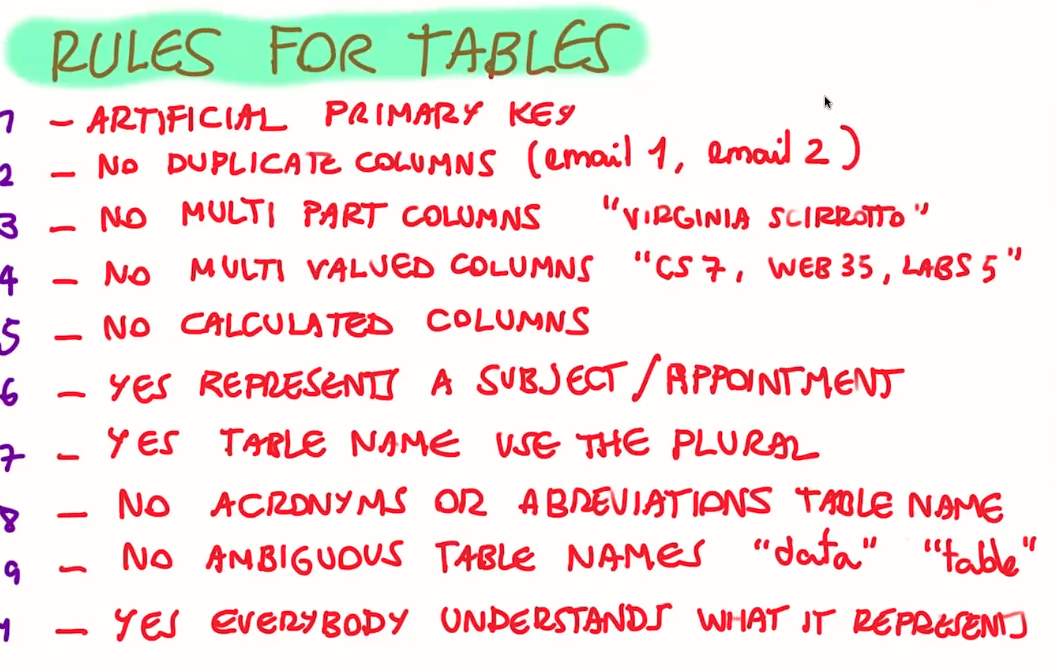 RULES FOR TABLES
1 - ARTIFICIAL PRIMARY KEY
2 - NO DUPLICATE COLUMNS (email 1, email 2)
3 - NO MULTI PART COLUMNS "VIRGINIA SCIRROTTO"
4 - NO MULTI VALUED COLUMNS "CS 7, WEB 35, LABS 5"
5 - NO CALCULATED COLUMNS
6 - YES REPRESENTS A SUBJECT/APPOINTMENT
7 - YES TABLE NAME USE THE PLURAL
8 - NO ACRONYMS OR ABREVIATIONS TABLE NAME
9 - NO AMBIGUOUS TABLE NAMES "data" "table"
1 - YES EVERYBODY UNDERSTANDS WHAT IT REPRESENTS